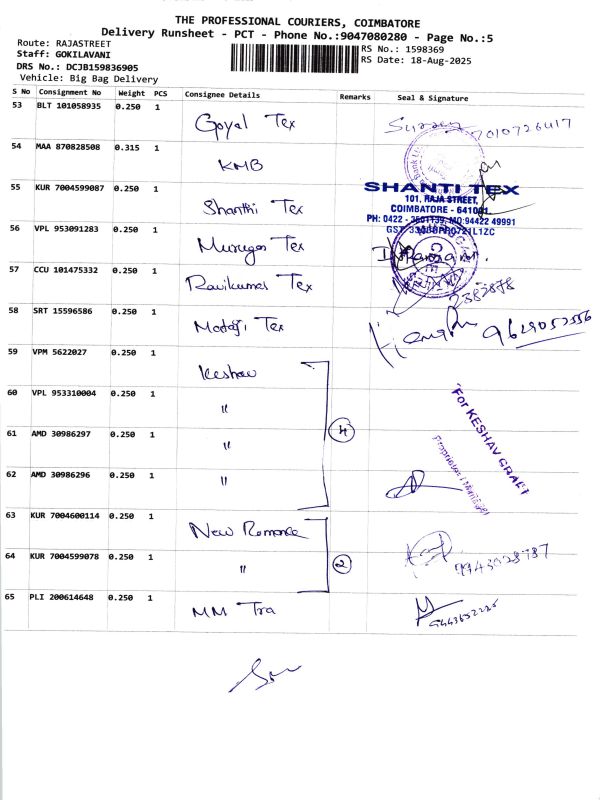 THE PROFESSIONAL COURIERS, COIMBATORE
Delivery Runsheet - PCT - Phone No.:9047080280 - Page No.:5
Route: RAJASTREET
RS No.: 1598369
Staff: GOKILAVANI
RS Date: 18-Aug-2025
DRS No.: DCJB159836905
Vehicle: Big Bag Delivery
S No Consignment No Weight PCS Consignee Details Remarks Seal & Signature
53 BLT 101058935 0.250 1 Goyal Tex 7010726417
54 MAA 870828508 0.315 1 KMB
55 KUR 7004599087 0.250 1 Shanthi Tex
SHANTI TEX
101, RAJA STREET,
COIMBATORE - 641001.
56 VPL 953091283 0.250 1 Murugas Tex
57 CCU 101475332 0.250 1 Ravikumar Tex
2382878
58 SRT 15596586 0.250 1 Mataji Tex 9629052556
59 VPM 5622027 0.250 1 Keshav
60 VPL 953310004 0.250 1 "
For KESHAV
61 AMD 30986297 0.250 1 " 4
62 AMD 30986296 0.250 1 "
63 KUR 7004600114 0.250 1 New Romance
64 KUR 7004599078 0.250 1 " 2
65 PLI 200614648 0.250 1 MM Tra